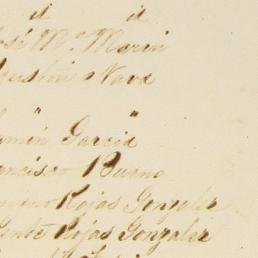 id id
osé Ma. Marin
gustin Nava
" "
amin Garcia
ancisco Bueno
Rojas Gonzalez
Rojas Gonzalez